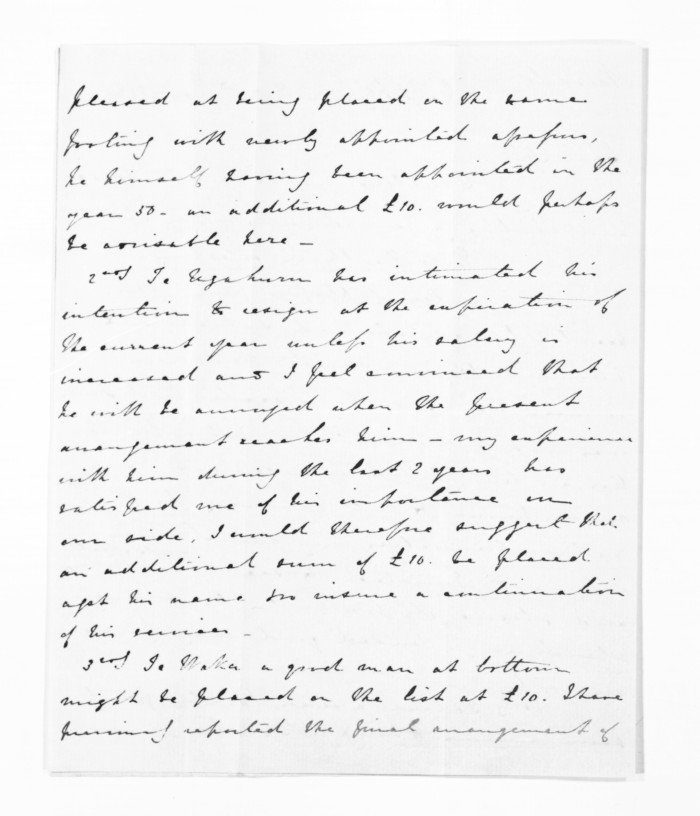 pleased at being placed on the same
footing with newly appointed assessors,
he himself having been appointed in the
year 50 - an additional £10. would perhaps
be advisable here -
2nd Te Ngahuru has intimated his
intention to resign at the expiration of
the current year unless his salary is
increased and I feel convinced that
he will be annoyed when the present
arrangement reaches him - my experience
with him during the last 2 years has
satisfied me of his importance on
our side, I would therefore suggest that
an additional sum of £10. be placed
agst his name to insure a continuation
of his services -
3rd Te Waka a good man at bottom
might be placed on the list at £10. I have
previously reported the final arrangement of